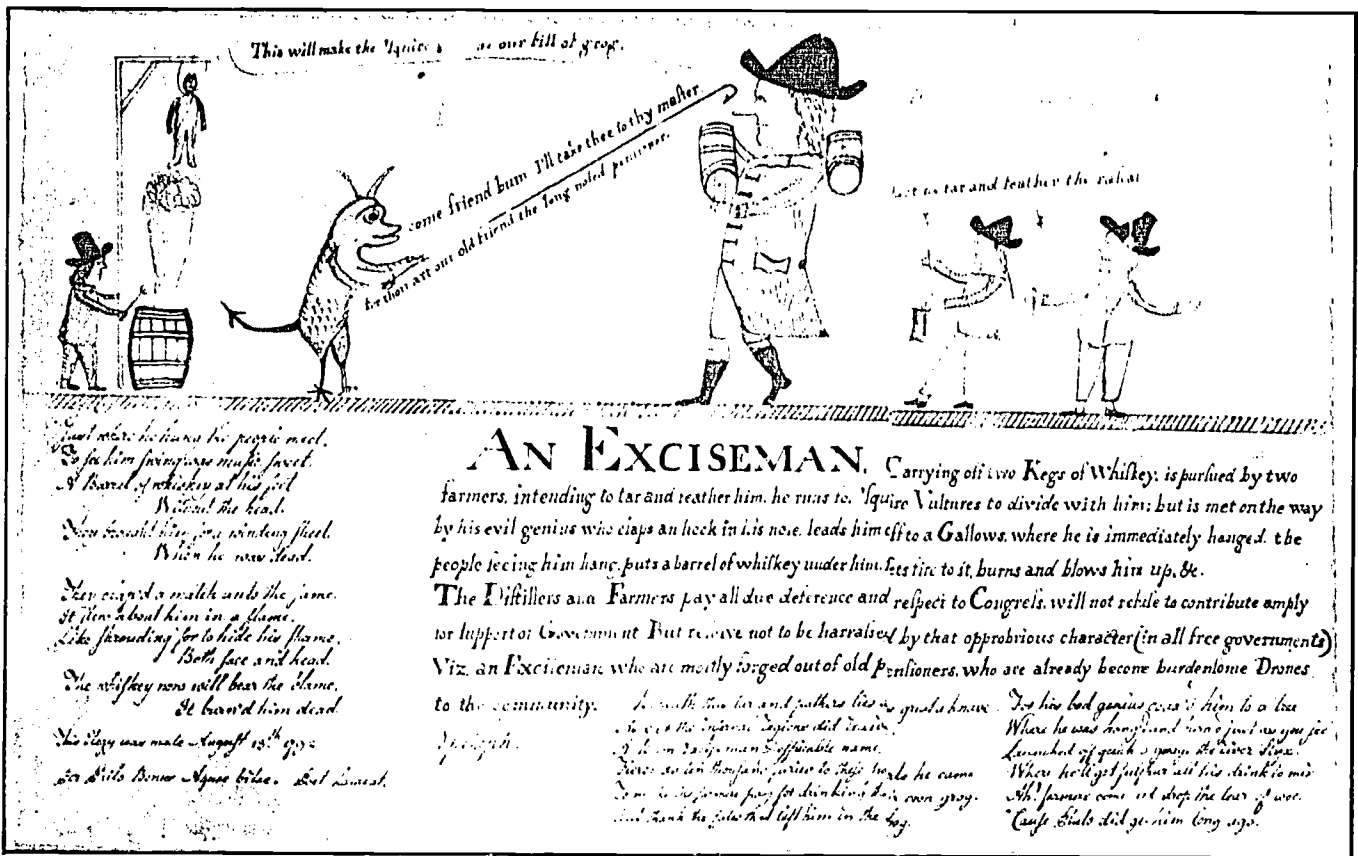 This will make the 'Squire our fill of grog.
come friend bum I'll take thee to thy master.
for thou art our old friend the long noted pensioner.
Let us tar and feather the rascal
Just where he hung the people meet.
To see him swing was music sweet.
A Barrel of whiskey at his feet
Without the head.
They brought him for a winding sheet
When he was dead.
They clap'd a match unto the same.
It flew about him in a flame.
Like shrouding for to hide his shame.
Both face and head.
The whiskey now will bear the blame.
It burn'd him dead
This Elegy was made August 13th 1792
Poet Laureat.
AN EXCISEMAN, Carrying off two Kegs of Whiskey, is pursued by two
farmers, intending to tar and feather him, he runs to, 'Squire Vultures to divide with him; but is met on the way
by his evil genius who claps an hook in his nose, leads him off to a Gallows, where he is immediately hanged. the
people seeing him hang, puts a barrel of whiskey under him, sets fire to it, burns and blows him up, &c.
The Distillers and Farmers pay all due deference and respect to Congress, will not refuse to contribute amply
for support of Government But resolve not to be harrassed by that opprobrious character (in all free governments)
Viz. an Exciseman, who are mostly forged out of old pensioners, who are already become burdensome Drones
to the community.
Epitaph.
Beneath this tar and feathers lies as great a knave
As e'er the infernal legions did
name
Fierce as ten thousand furies to these he came
pay for drinking their own grog.
And thank the that left him in the bog.
For his bad genius coax'd him to a tree
Where he was hang'd and just as you see
Launched off the river Styx.
Where he'll get sulphur all his drink to mix
Ah! farmers come drop the tear of woe.
'Cause did get him long ago.